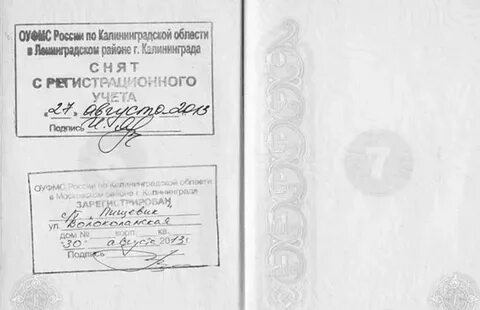 ОУФМС России по Калининградской области
в Ленинградском районе г. Калининграда
СНЯТ
С РЕГИСТРАЦИОННОГО
УЧЕТА
«27» августа 2013
Подпись
ОУФМС России по Калининградской области
в Московском районе г. Калининграда
ЗАРЕГИСТРИРОВАН
Пищевик
ул. Волоколамская
дом № корп. кв.
"30" августа 2013 г.
Подпись
7